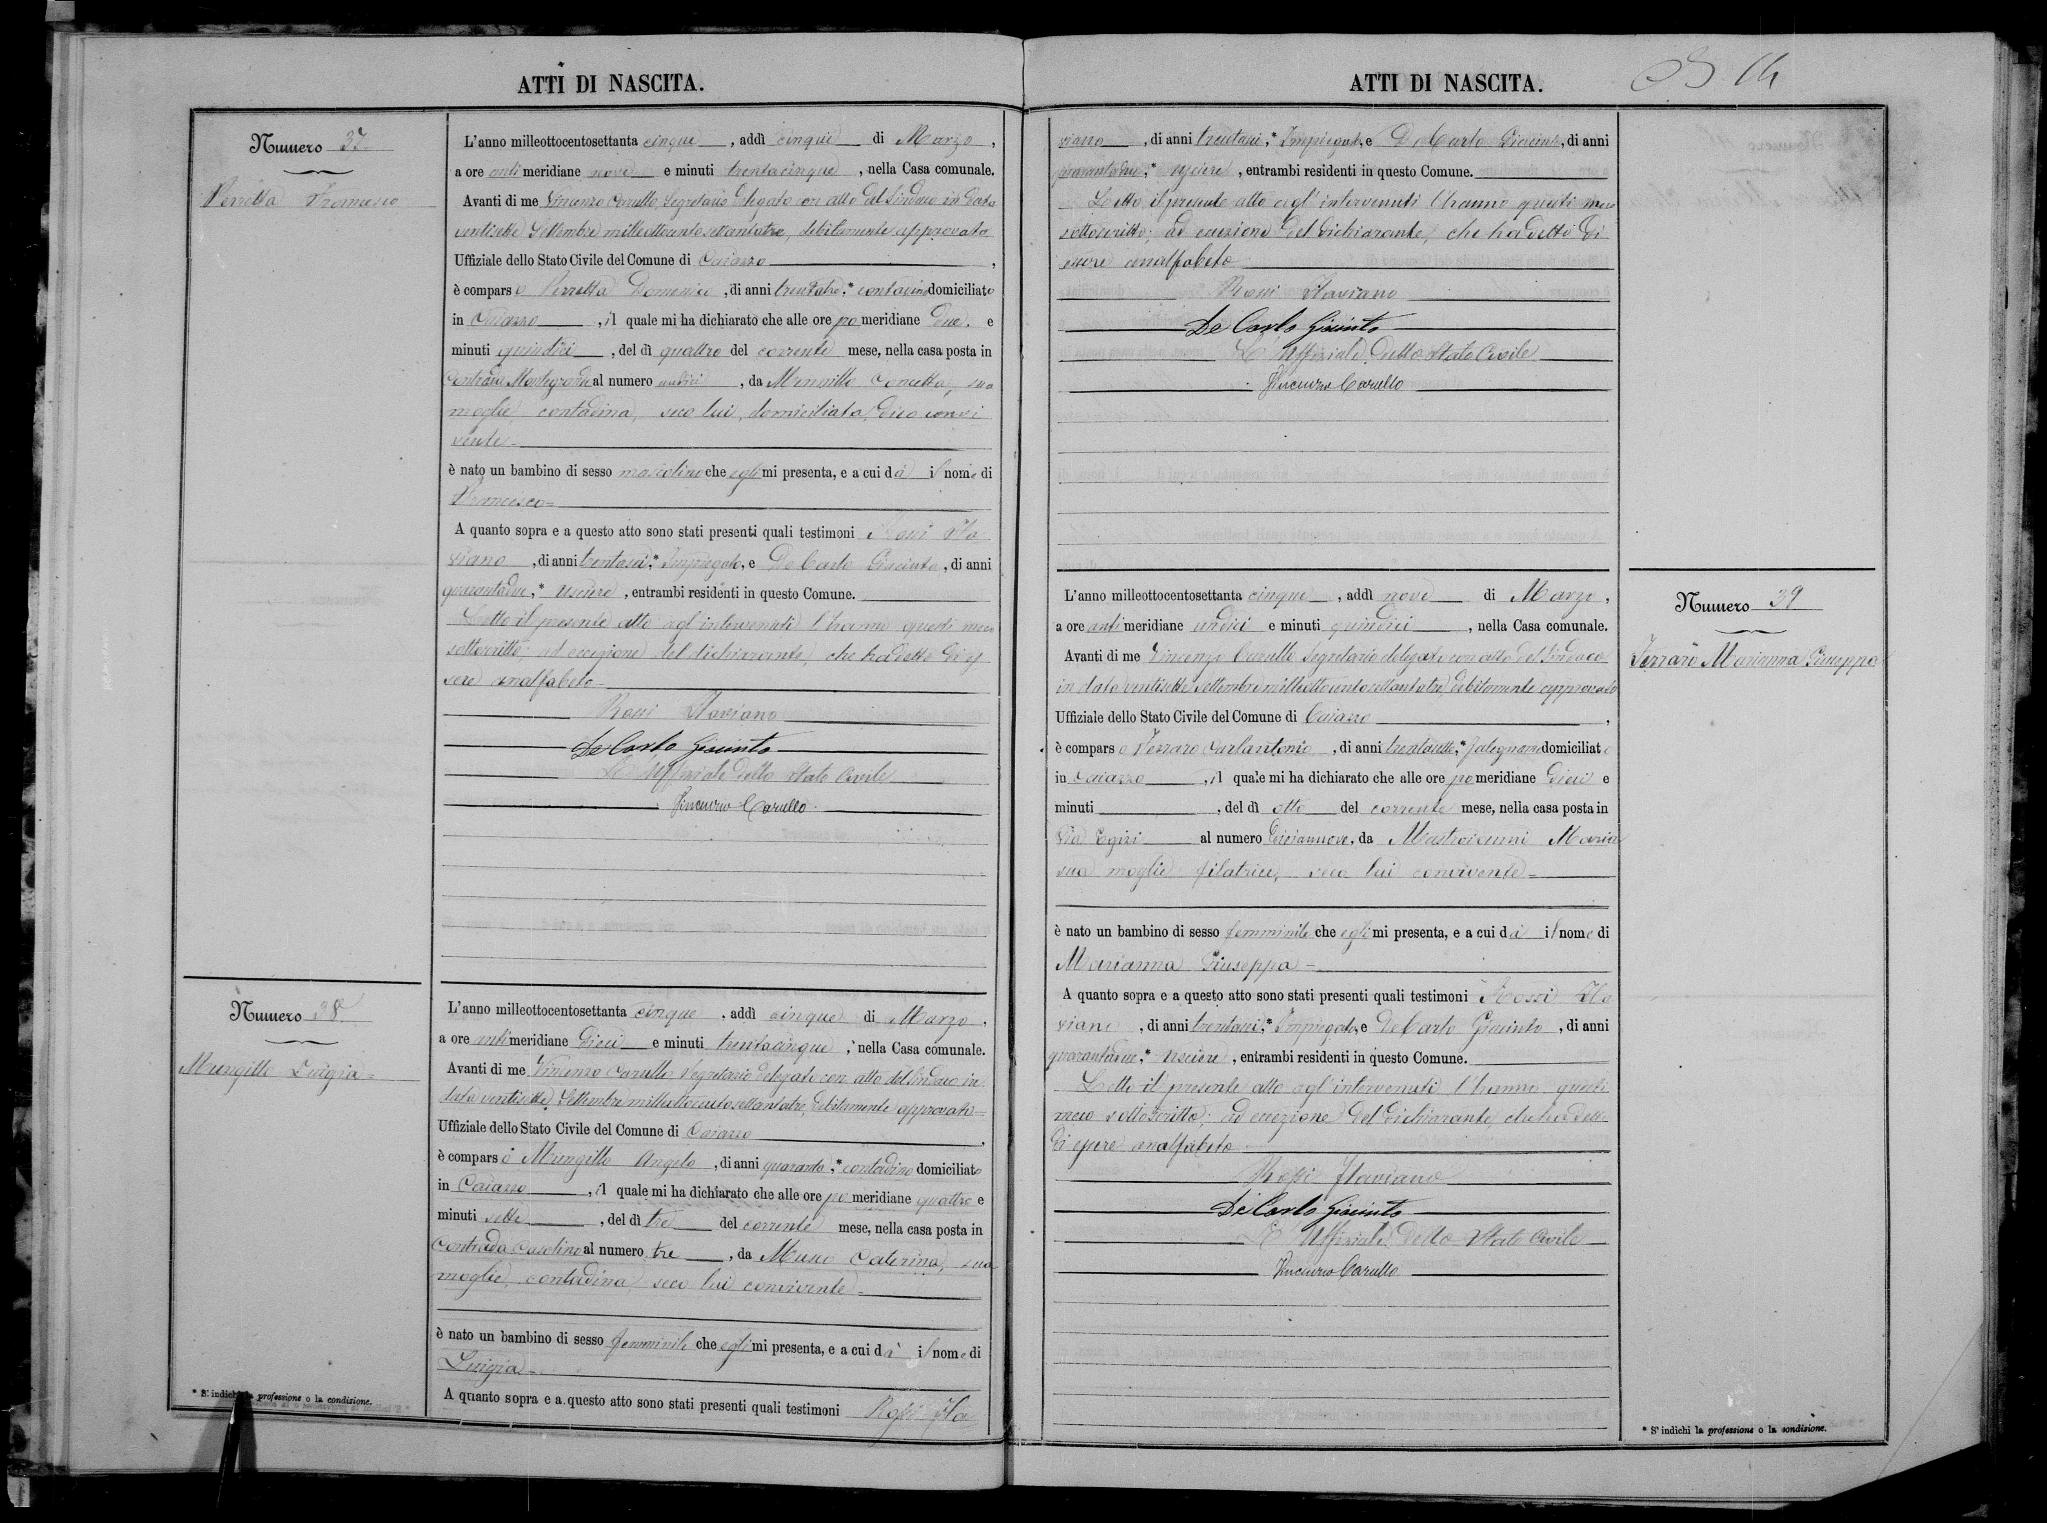 ATTI DI NASCITA.
Numero 37
Perretta Francesco
L'anno milleottocentosettanta cinque, addì cinque di Marzo,
a ore antimeridiane nove e minuti trentacinque, nella Casa comunale.
Avanti di me Vincenzo Carullo Segretario delegato con atto del Sindaco in data
ventisette Settembre milleottocentosettantatre, debitamente approvato
Uffiziale dello Stato Civile del Comune di Caiazzo,
è comparso Perretta Domenico, di anni trentatre,* contadino domiciliato
in Caiazzo, il quale mi ha dichiarato che alle ore pomeridiane due e
minuti quindici, del dì quattro del corrente mese, nella casa posta in
Contrada Montegrande al numero undici, da Mungillo Concetta, sua
moglie, contadina, seco lui, domiciliata, dico convi
vente-
è nato un bambino di sesso mascolino che egli mi presenta, e a cui dà il nome di
Francesco=
A quanto sopra e a questo atto sono stati presenti quali testimoni Rossi Fla
viano, di anni trentasei,* Impiegato, e De Carlo Giacinto, di anni
quarantadue,* usciere, entrambi residenti in questo Comune.
Letto il presente atto agl'intervenuti l'hanno questi meco
sottoscritto; ad eccezione del dichiarante, che ha detto di es
sere analfabeto-
Rossi Flaviano
De Carlo Giacinto
L'Uffiziale dello Stato Civile
Vincenzo Carullo
Numero 38
Mungillo Luigia=
L'anno milleottocentosettanta cinque, addì cinque di Marzo,
a ore antimeridiane dieci e minuti trentacinque, nella Casa comunale.
Avanti di me Vincenzo Carullo Segretario delegato con atto del Sindaco in
data ventisette Settembre milleottocentosettantatre, debitamente approvato=
Uffiziale dello Stato Civile del Comune di Caiazzo,
è comparso Mungillo Angelo, di anni quaranta,* contadino domiciliato
in Caiazzo, il quale mi ha dichiarato che alle ore pomeridiane quattro e
minuti sette, del dì tre del corrente mese, nella casa posta in
Contrada Casolino al numero tre, da Musco Caterina, sua
moglie, contadina, seco lui convivente-
è nato un bambino di sesso femminile che egli mi presenta, e a cui dà il nome di
Luigia-
A quanto sopra e a questo atto sono stati presenti quali testimoni Rossi Fla
* S'indichi la professione o la condizione.
ATTI DI NASCITA.
14
viano, di anni trentasei,* Impiegato, e De Carlo Giacinto, di anni
quarantadue,* usciere, entrambi residenti in questo Comune.
Letto il presente atto agl'intervenuti l'hanno questi meco
sottoscritto; ad eccezione del dichiarante, che ha detto di
essere analfabeto
Rossi Flaviano
De Carlo Giacinto
L'Uffiziale dello Stato Civile
Vincenzo Carullo
Numero 39
Ferraro Marianna Giuseppa
L'anno milleottocentosettanta cinque, addì nove di Marzo,
a ore antimeridiane undici e minuti quindici, nella Casa comunale.
Avanti di me Vincenzo Carullo Segretario delegato con atto del Sindaco
in data ventisette Settembre milleottocentosettantatre debitamente approvato
Uffiziale dello Stato Civile del Comune di Caiazzo,
è comparso Ferraro Carlantonio, di anni trentasette,* falegname domiciliato
in Caiazzo, il quale mi ha dichiarato che alle ore pomeridiane dieci e
minuti, del dì otto del corrente mese, nella casa posta in
Via Egizi al numero diciannove, da Mastroianni Maria
sua moglie filatrice, seco lui convivente-
è nato un bambino di sesso femminile che egli mi presenta, e a cui dà il nome di
Marianna Giuseppa-
A quanto sopra e a questo atto sono stati presenti quali testimoni Rossi Fla
viano, di anni trentasei,* Impiegato, e De Carlo Giacinto, di anni
quarantadue,* Usciere, entrambi residenti in questo Comune.
Letto il presente atto agl'intervenuti l'hanno questi
meco sottoscritto; ad eccezione del dichiarante, che ha detto
di essere analfabeto
Rossi Flaviano
De Carlo Giacinto
L'Uffiziale dello Stato Civile
Vincenzo Carullo
* S'indichi la professione o la condizione.